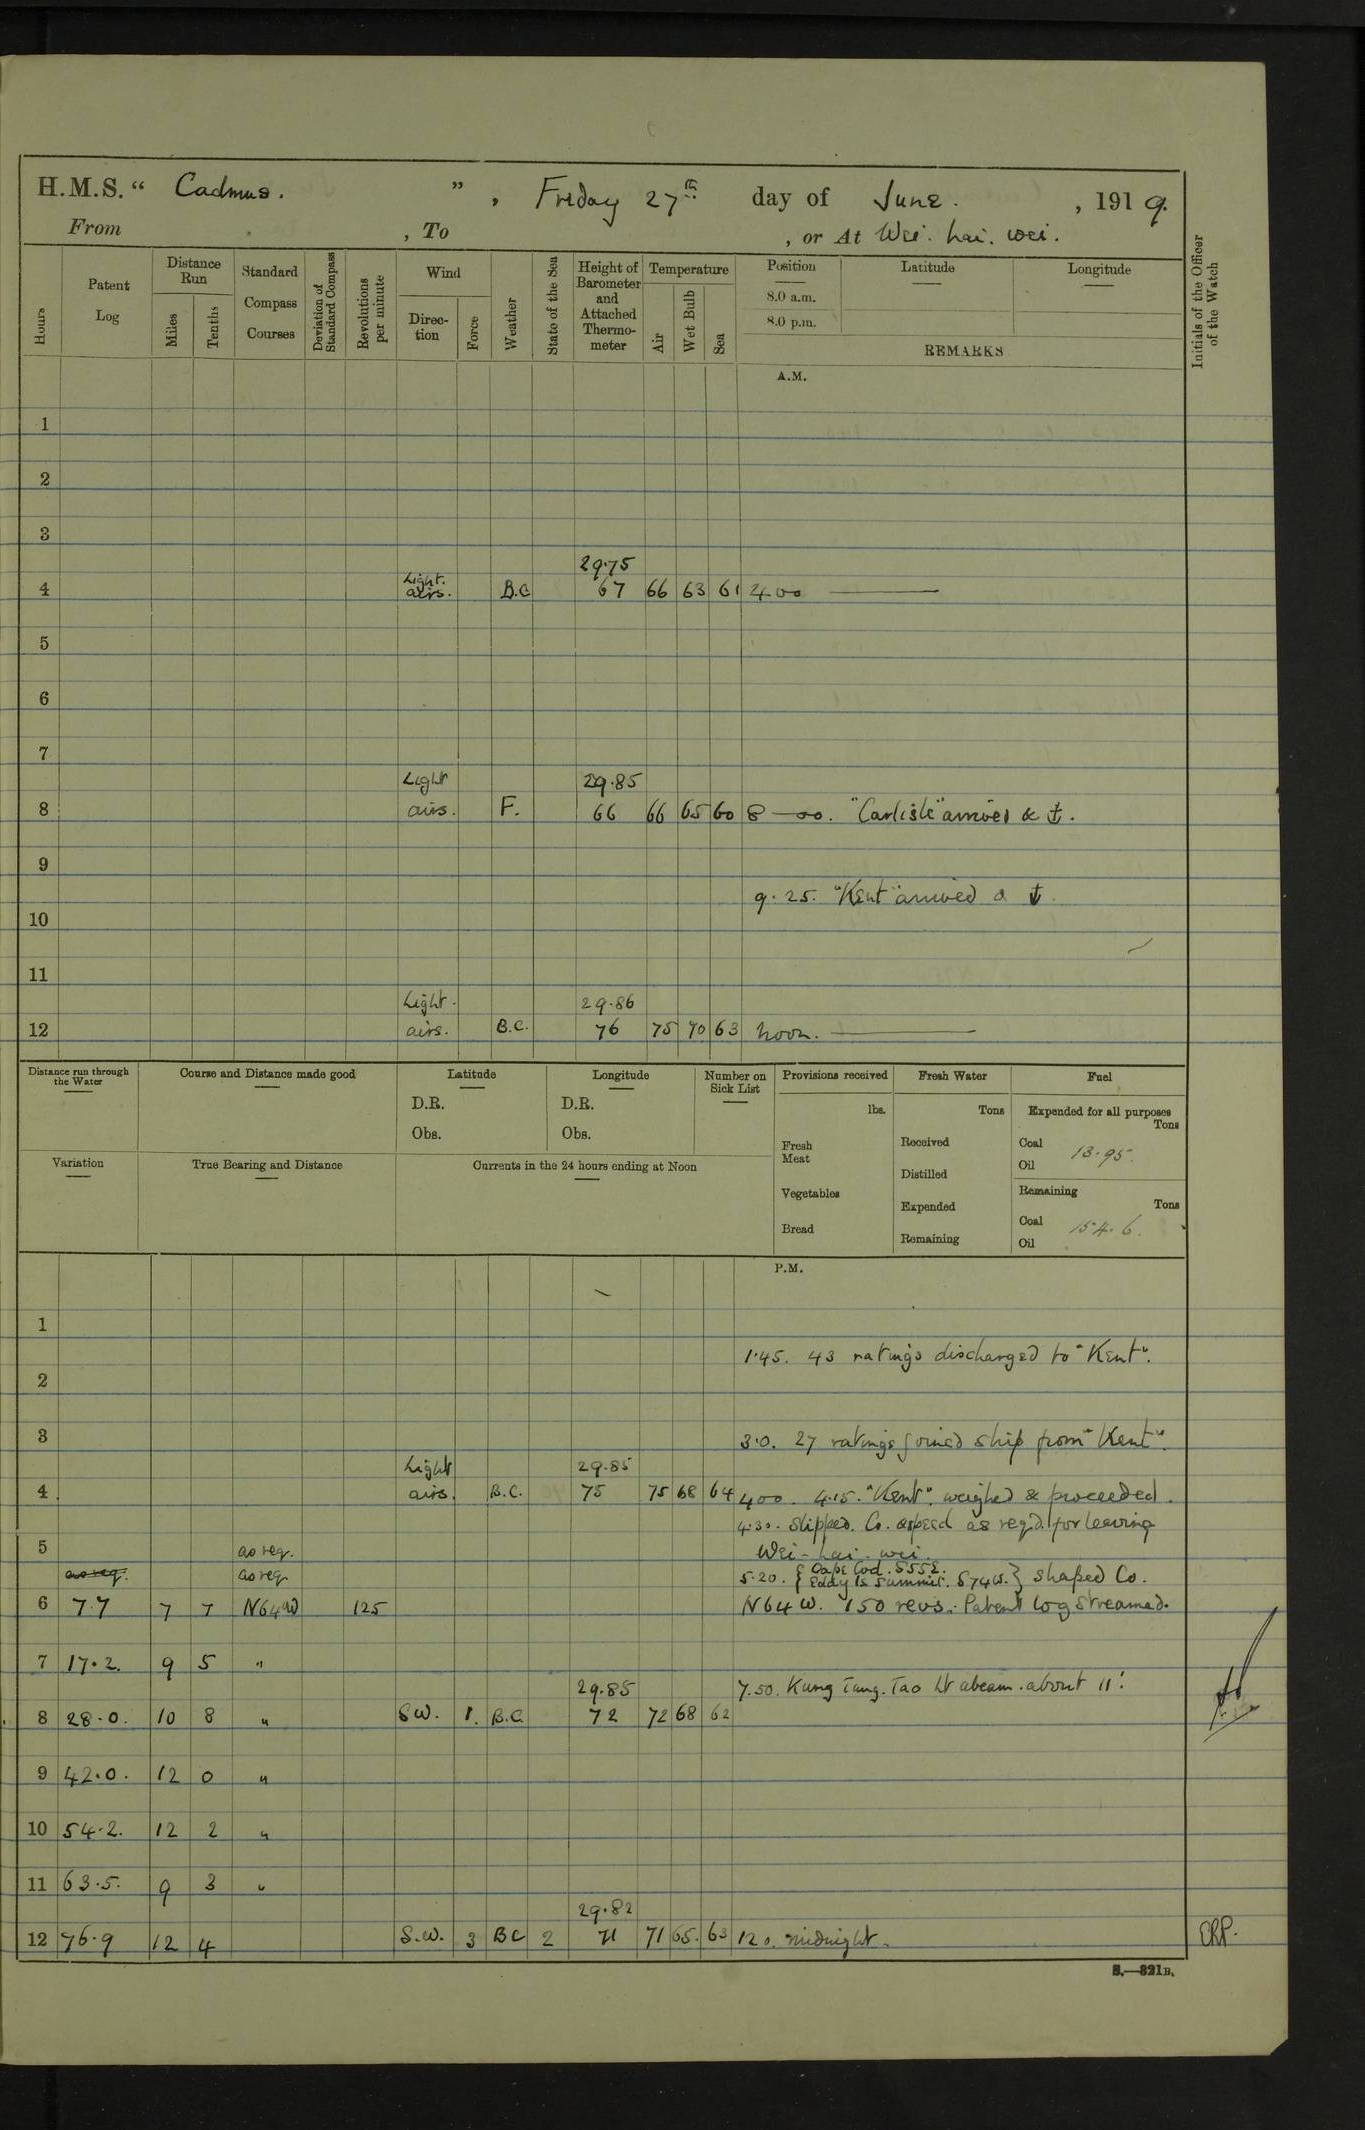 H.M.S. “ Cadmus. ” , Friday 27th day of June. , 1919.
From , To , or At Wei. hai. wei.
Hours
Patent Log
Distance Run
Miles
Tenths
Standard Compass Courses
Deviation of Standard Compass
Revolutions per minute
Wind
Direction
Force
Weather
State of the Sea
Height of Barometer and Attached Thermometer
Temperature
Air
Wet Bulb
Sea
Position
8.0 a.m.
8.0 p.m.
Latitude
Longitude
REMARKS
Initials of the Officer of the Watch
A.M.
1
2
3
29.75
4 Light. airs. B.C 67 66 63 61 4.00 ———
5
6
7
Light 29.85
8 airs. F. 66 66 65 60 8—00. "Carlisle" arrived & ⚓.
9
9.25. "Kent" arrived & ⚓.
10
11
Light. 29.86
12 airs. B.C. 76 75 70 63 Noon. ———
Distance run through the Water
Course and Distance made good
Latitude
D.R.
Obs.
Longitude
D.R.
Obs.
Number on Sick List
Provisions received
lbs.
Fresh Meat
Vegetables
Bread
Fresh Water
Tons
Received
Distilled
Expended
Remaining
Fuel
Expended for all purposes
Tons
Coal 13.95.
Oil
Remaining
Tons
Coal 154.6.
Oil
Variation
True Bearing and Distance
Currents in the 24 hours ending at Noon
P.M.
1
1.45. 43 ratings discharged to "Kent".
2
3 3.0. 27 ratings joined ship from "Kent".
Light 29.85
4 airs. B.C. 75 75 68 64 400. 4.15. "Kent". weighed & proceeded.
4.30. Slipped. Co. & speed as reqd. for leaving
5 as req. Wei-hai-wei.
as req. as req. 5.20. { Cape Cod. S55E. Eddy Is Summit. S74W. } shaped Co.
6 7.7 7 7 N64W 125 N64W. 150 revs. Patent log streamed.
7 17.2. 9 5 "
29.85 7.50. Kung Tung. Tao Lt abeam. about 11'.
8 28.0. 10 8 " SW. 1. B.C. 72 72 68 62
9 42.0. 12 0 "
10 54.2. 12 2 "
11 63.5. 9 3 "
29.82
12 76.9 12 4 S.W. 3 BC 2 71 71 65. 63 12.0. midnight. ERP.
S.—321B.